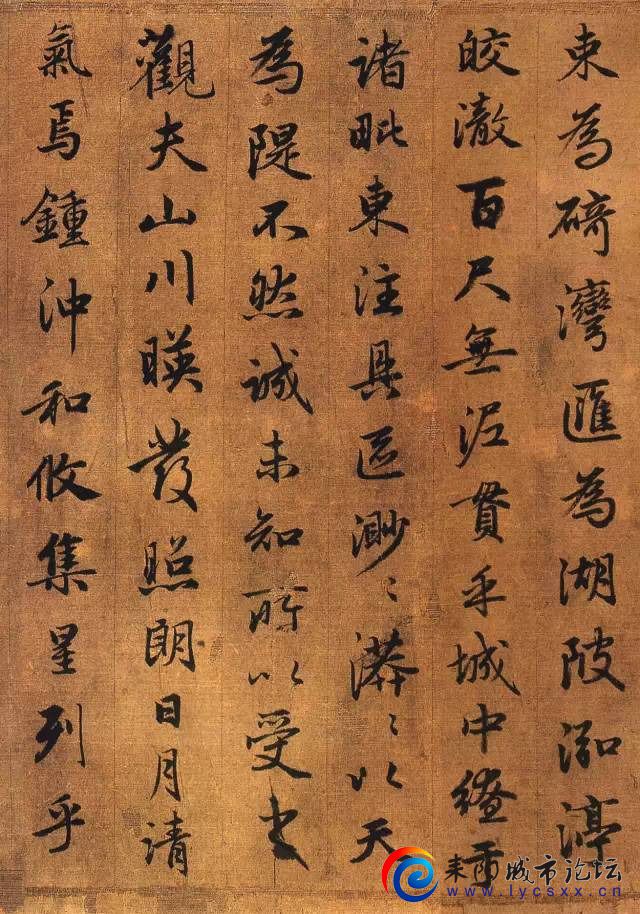 束為碕灣匯為湖陂泓渟
皎澈百尺無泥貫乎城中繚
諸毗東注具區渺〻漭〻以天
為隄不然誠未知所以受之
觀夫山川暎發照朗日月清
氣焉鍾沖和攸集星列乎
城市论坛
www.lycsxx.cn